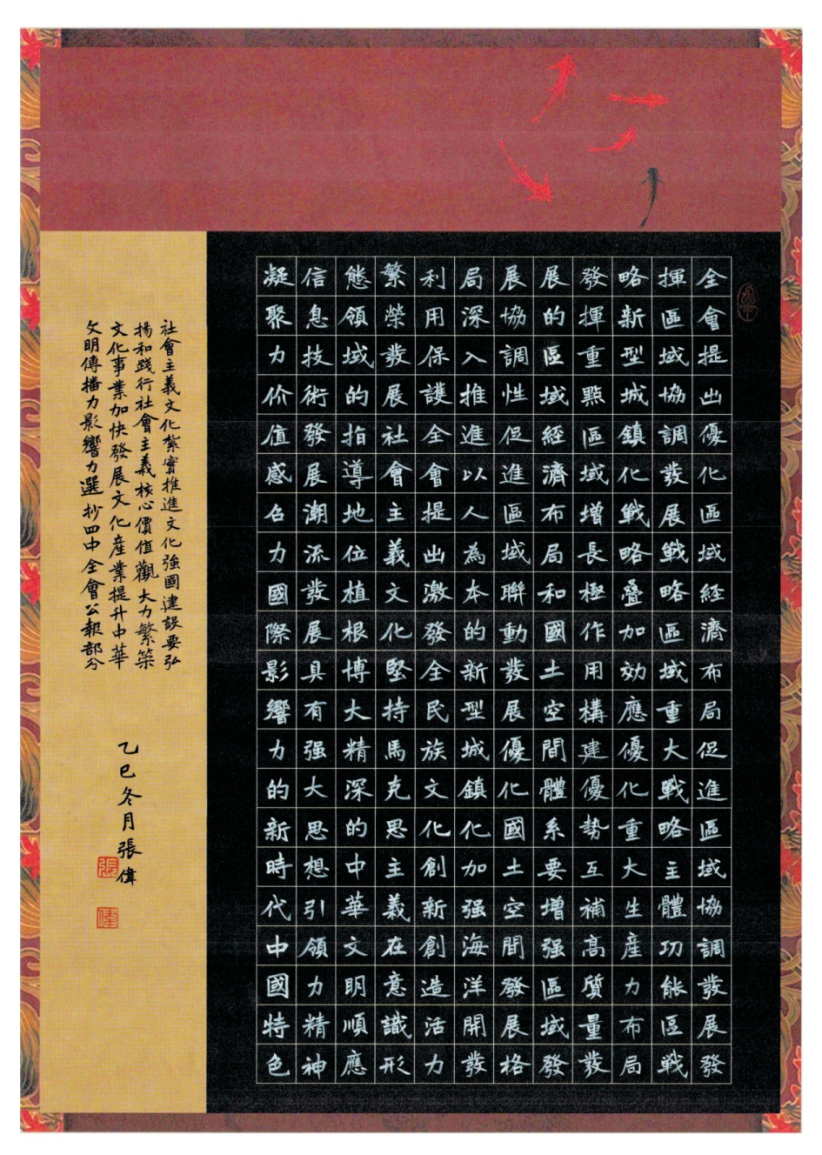 全會提出優化區域經濟布局促進區域協調發展發
揮區域協調發展戰略區域重大戰略主體功能區戰
略新型城鎮化戰略疊加効應優化重大生産力布局
發揮重點區域增長極作用構建優勢互補高質量發
展的區域經濟布局和國土空間體系要增强區域發
展協調性促進區域聯動發展優化國土空間發展格
局深入推進以人為本的新型城鎮化加强海洋開發
利用保護全會提出激發全民族文化創新創造活力
繁榮發展社會主義文化堅持馬克思主義在意識形
態領域的指導地位植根博大精深的中華文明順應
信息技術發展潮流發展具有强大思想引領力精神
凝聚力价值感召力國際影響力的新時代中國特色
社會主義文化紮實推進文化強國建設要弘
揚和踐行社會主義核心價值觀大力繁榮
文化事業加快發展文化産業提升中華
文明傳播力影響力選抄四中全會公報部分
乙巳冬月張偉
張
偉